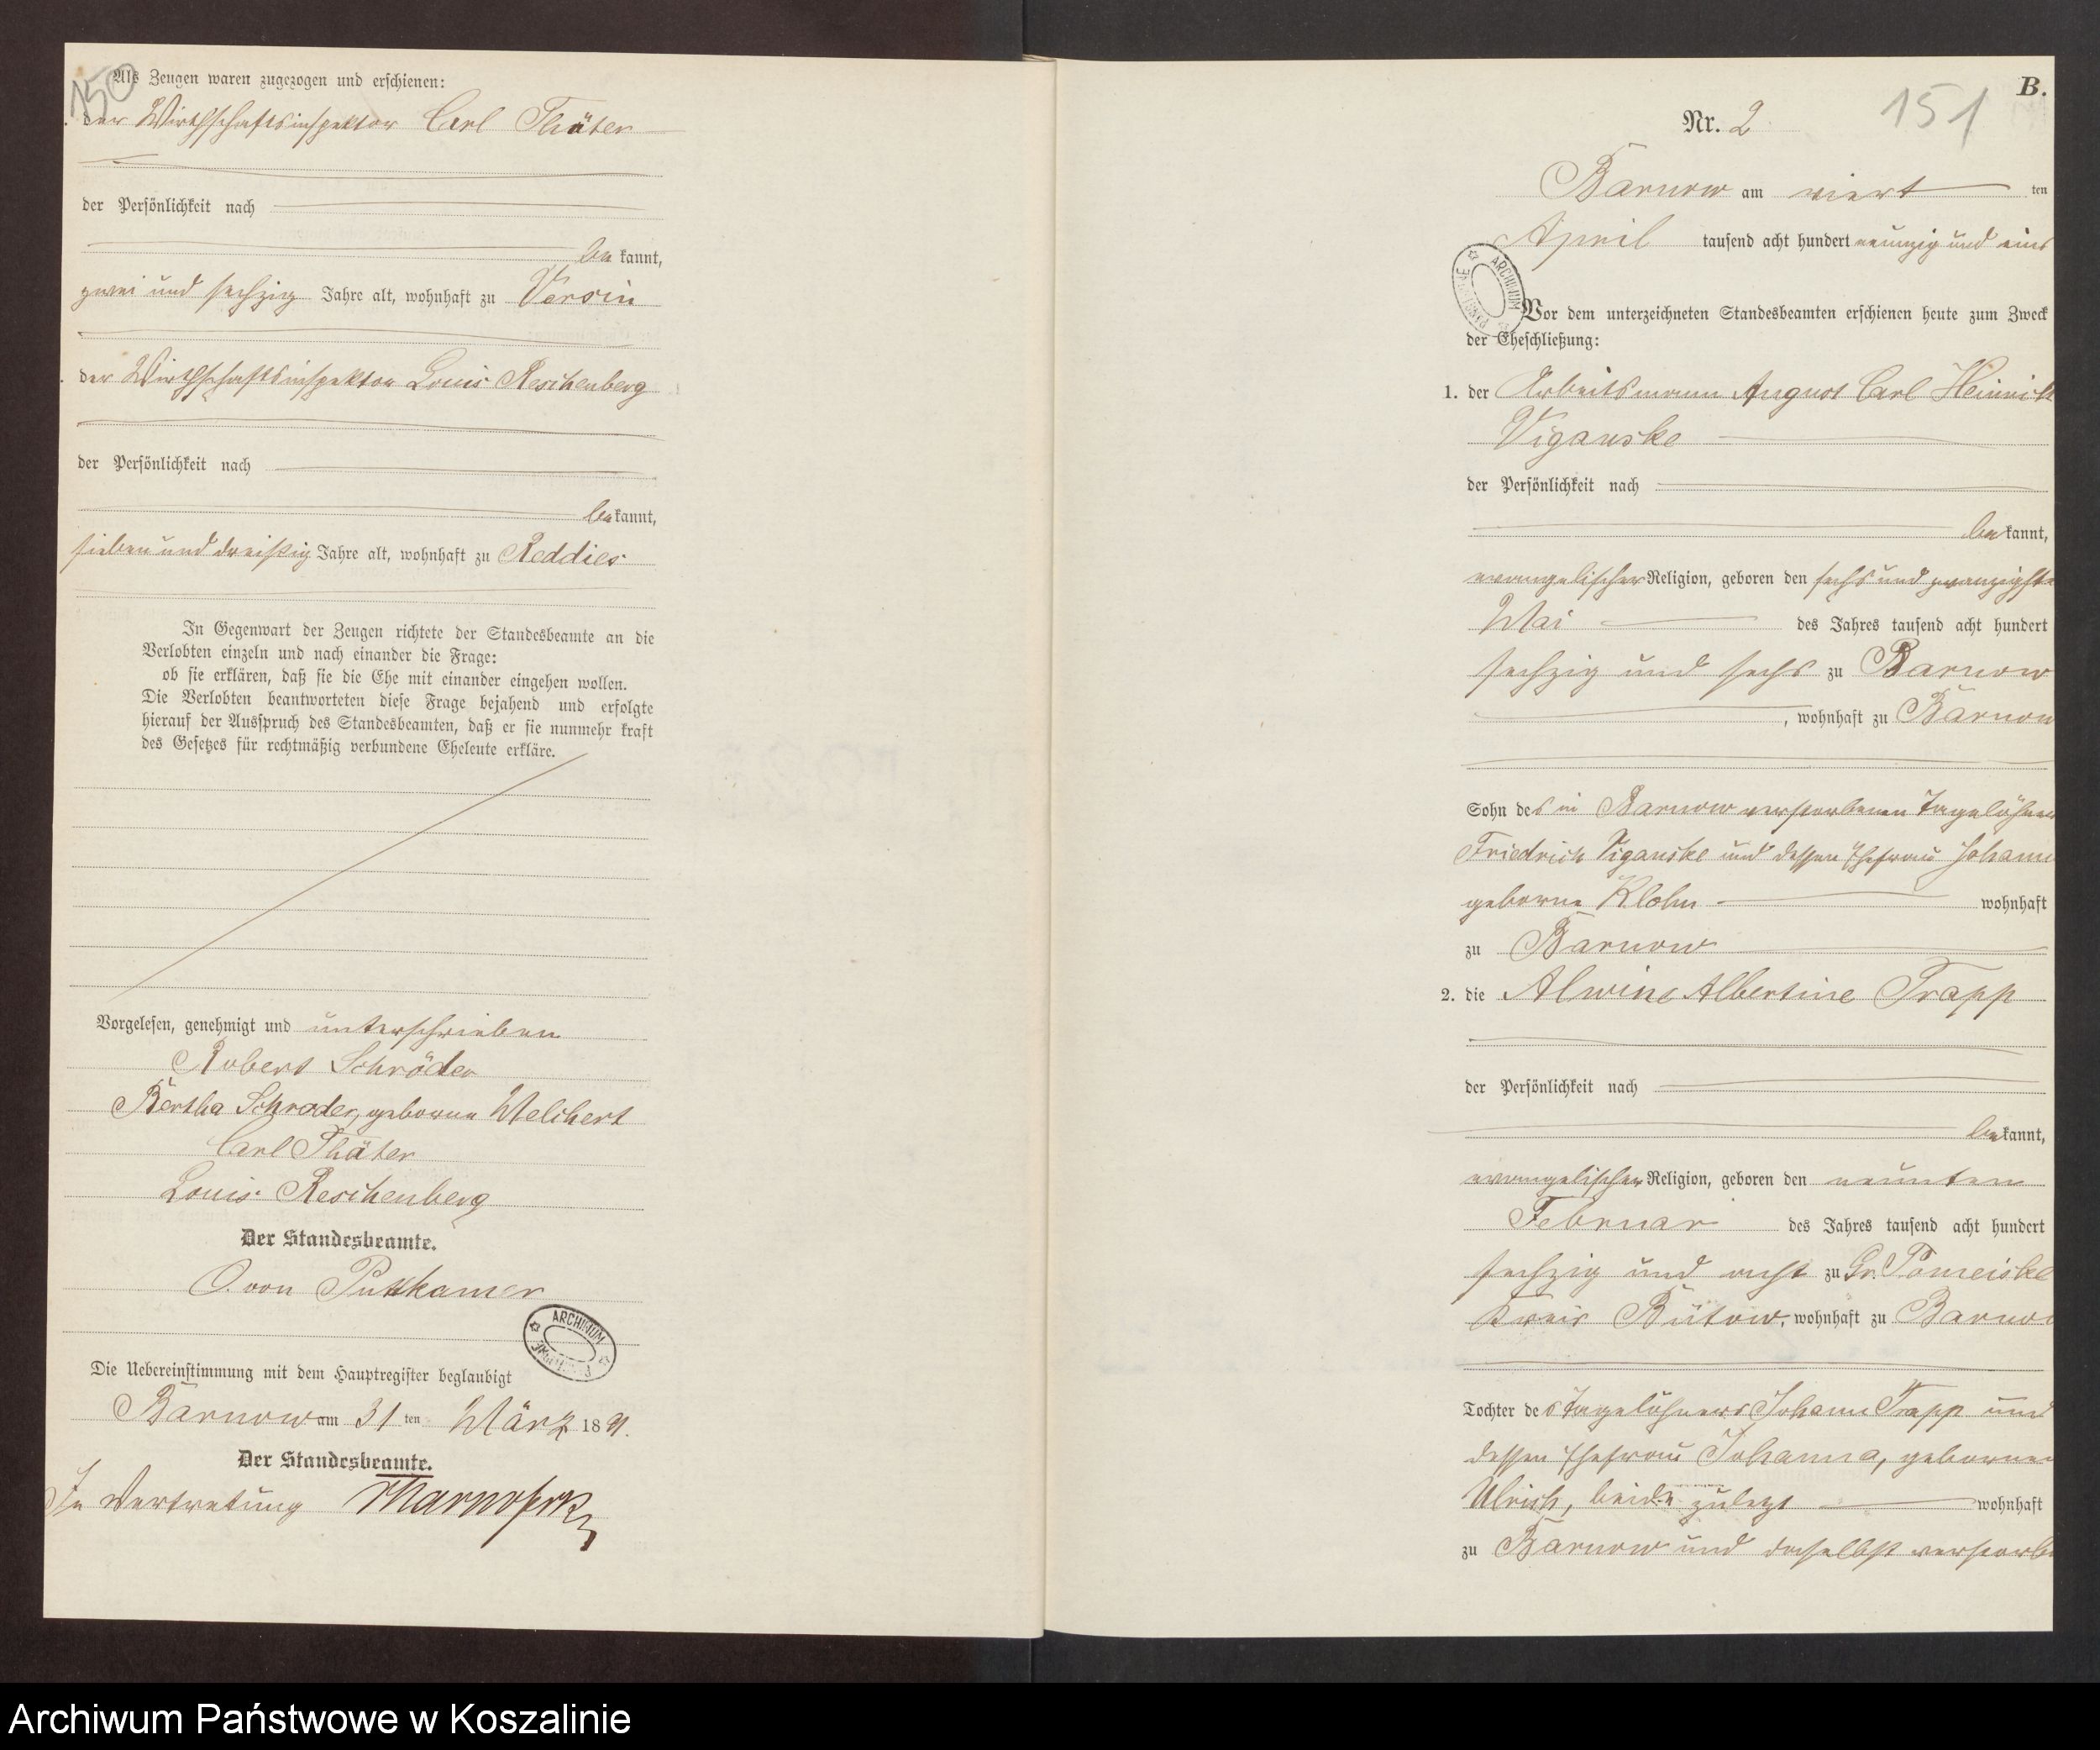 150
Als Zeugen waren zugezogen und erschienen:
der Wirthschaftsinspektor Carl Thäter
der Persönlichkeit nach
be kannt,
zwei und sechzig Jahre alt, wohnhaft zu Versin
der Wirthschaftsinspektor Louis Reschenberg
der Persönlichkeit nach
bekannt,
sieben und dreißig Jahre alt, wohnhaft zu Reddies
In Gegenwart der Zeugen richtete der Standesbeamte an die
Verlobten einzeln und nach einander die Frage:
ob sie erklären, daß sie die Ehe mit einander eingehen wollen.
Die Verlobten beantworteten diese Frage bejahend und erfolgte
hierauf der Ausspruch des Standesbeamten, daß er sie nunmehr kraft
des Gesetzes für rechtmäßig verbundene Eheleute erkläre.
Vorgelesen, genehmigt und unterschrieben
Robert Schröder
Bertha Schröder, geborne Melchert
Carl Thäter
Louis Reschenberg
Der Standesbeamte.
O. von Puttkamer
ARCHIWUM
Die Uebereinstimmung mit dem Hauptregister beglaubigt
Barnow am 31 ten März 1891.
Der Standesbeamte.
In Vertretung
B.
151
Nr. 2
Barnow am viert ten
April tausend acht hundert neunzig und eins
ARCHIWUM
Vor dem unterzeichneten Standesbeamten erschienen heute zum Zweck
der Eheschließung:
1. der Arbeitsmann August Carl Heinrich
Viganske
der Persönlichkeit nach
bekannt,
evangelischer Religion, geboren den sechs und zwanzigste
Mai des Jahres tausend acht hundert
sechzig und sechs zu Barnow
, wohnhaft zu Barnow
Sohn des in Barnow verstorbenen Tagelöhner
Friedrich Viganske und dessen Ehefrau Johann
geborne Klohn wohnhaft
zu Barnow
2. die Alwine Albertine Trapp
der Persönlichkeit nach
bekannt,
evangelischer Religion, geboren den neunten
Februar des Jahres tausend acht hundert
sechzig und acht zu Gr. Pomeiske
Kreis Bütow, wohnhaft zu Barnow
Tochter des Tagelöhners Johann Trapp und
dessen Ehefrau Johanna, geborne
Ulrich, beide zuletzt wohnhaft
zu Barnow und daselbst verstorbe
Archiwum Państwowe w Koszalinie